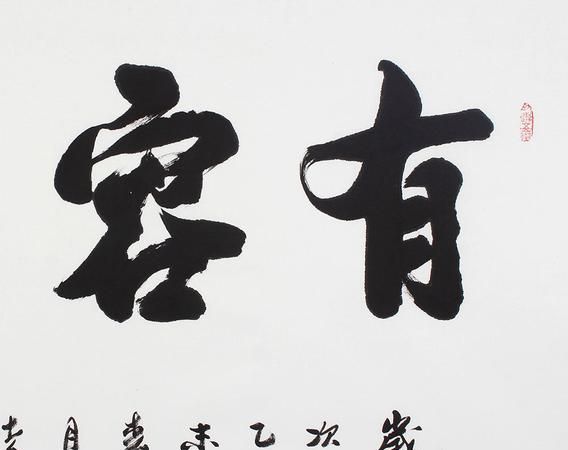 有容
歲次乙未春月